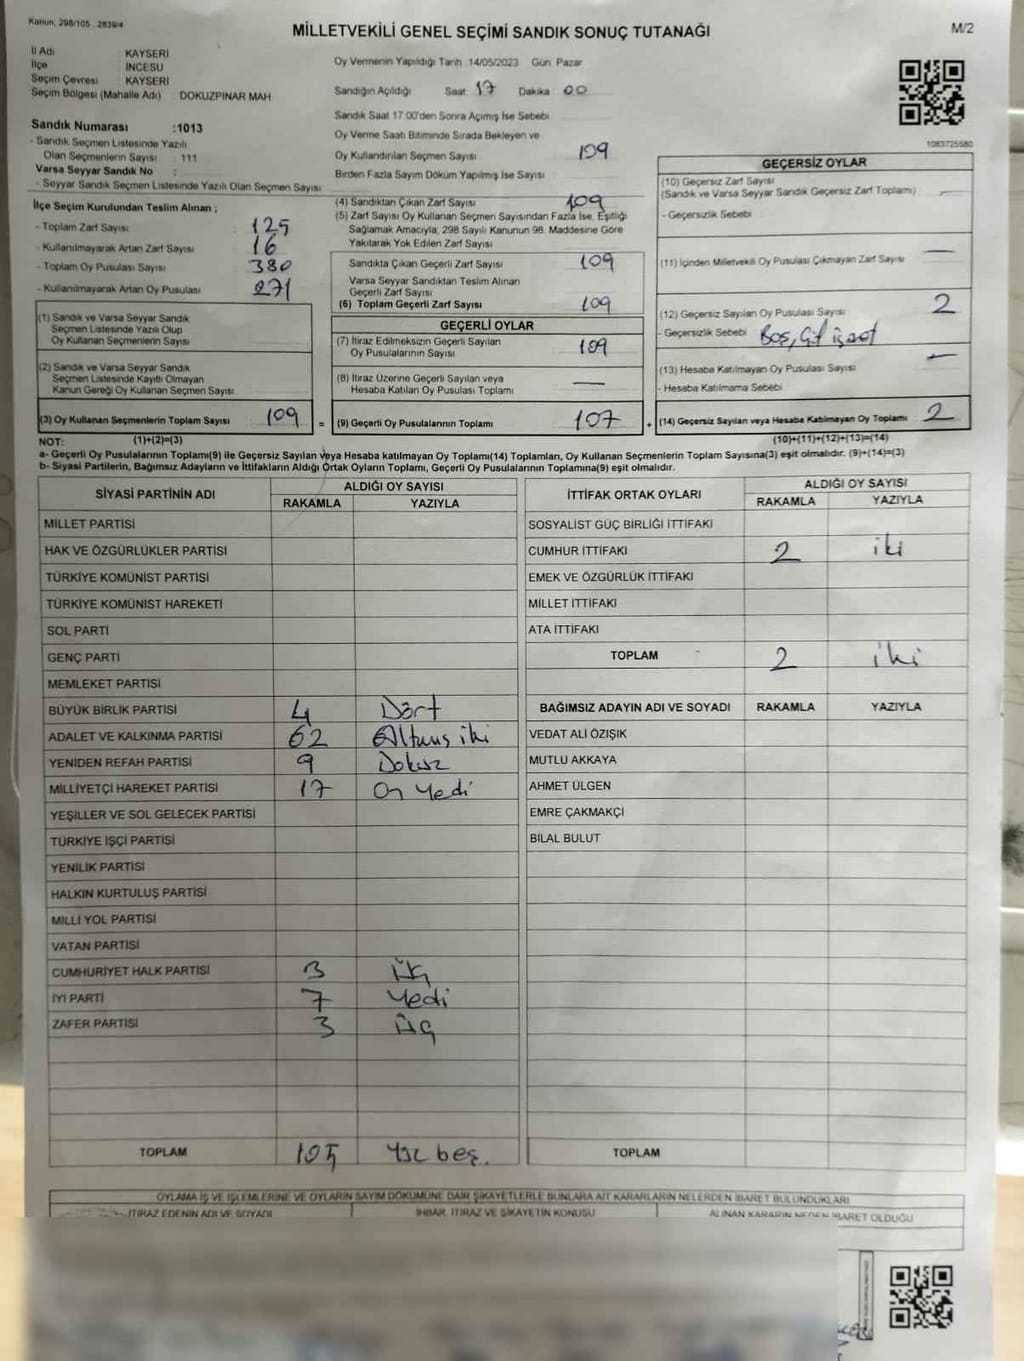 Kanun, 298/105 , 2839/4
MİLLETVEKİLİ GENEL SEÇİMİ SANDIK SONUÇ TUTANAĞI
M/2
İl Adı KAYSERİ
İlçe İNCESU
Seçim Çevresi KAYSERİ
Seçim Bölgesi (Mahalle Adı) DOKUZPINAR MAH
Sandık Numarası :1013
- Sandık Seçmen Listesinde Yazılı
Olan Seçmenlerin Sayısı : 111
Varsa Seyyar Sandık No :
- Seyyar Sandık Seçmen Listesinde Yazılı Olan Seçmen Sayısı
İlçe Seçim Kurulundan Teslim Alınan ;
- Toplam Zarf Sayısı 125
- Kullanılmayarak Artan Zarf Sayısı 16
- Toplam Oy Pusulası Sayısı 380
- Kullanılmayarak Artan Oy Pusulası 271
(1) Sandık ve Varsa Seyyar Sandık
Seçmen Listesinde Yazılı Olup
Oy Kullanan Seçmenlerin Sayısı
(2) Sandık ve Varsa Seyyar Sandık
Seçmen Listesinde Kayıtlı Olmayan
Kanun Gereği Oy Kullanan Seçmen Sayısı
(3) Oy Kullanan Seçmenlerin Toplam Sayısı 109
Oy Vermenin Yapıldığı Tarih 14/05/2023 Gün Pazar
Sandığın Açıldığı Saat 17 Dakika 00
Sandık Saat 17:00'den Sonra Açımış İse Sebebi
Oy Verme Saati Bitiminde Sırada Bekleyen ve
Oy Kullandırılan Seçmen Sayısı 109
Birden Fazla Sayım Döküm Yapılmış İse Sayısı
(4) Sandıktan Çıkan Zarf Sayısı 109
(5) Zarf Sayısı Oy Kullanan Seçmen Sayısından Fazla İse, Eşitliği
Sağlamak Amacıyla, 298 Sayılı Kanunun 98. Maddesine Göre
Yakılarak Yok Edilen Zarf Sayısı
Sandıkta Çıkan Geçerli Zarf Sayısı 109
Varsa Seyyar Sandıktan Teslim Alınan
Geçerli Zarf Sayısı
(6) Toplam Geçerli Zarf Sayısı 109
GEÇERLİ OYLAR
(7) İtiraz Edilmeksizin Geçerli Sayılan
Oy Pusulalarının Sayısı 109
(8) İtiraz Üzerine Geçerli Sayılan veya
Hesaba Katılan Oy Pusulası Toplamı —
= (9) Geçerli Oy Pusulalarının Toplamı 107
1083725580
GEÇERSİZ OYLAR
(10) Geçersiz Zarf Sayısı
(Sandık ve Varsa Seyyar Sandık Geçersiz Zarf Toplamı) —
- Geçersizlik Sebebi
(11) İçinden Milletvekili Oy Pusulası Çıkmayan Zarf Sayısı —
(12) Geçersiz Sayılan Oy Pusulası Sayısı 2
- Geçersizlik Sebebi Boş, Çift işaret
(13) Hesaba Katılmayan Oy Pusulası Sayısı —
- Hesaba Katılmama Sebebi
+ (14) Geçersiz Sayılan veya Hesaba Katılmayan Oy Toplamı 2
NOT: (1)+(2)=(3)
(10)+(11)+(12)+(13)=(14)
a- Geçerli Oy Pusulalarının Toplamı(9) ile Geçersiz Sayılan veya Hesaba katılmayan Oy Toplamı(14) Toplamları, Oy Kullanan Seçmenlerin Toplam Sayısına(3) eşit olmalıdır. (9)+(14)=(3)
b- Siyasi Partilerin, Bağımsız Adayların ve İttifakların Aldığı Ortak Oyların Toplamı, Geçerli Oy Pusulalarının Toplamına(9) eşit olmalıdır.
SİYASİ PARTİNİN ADI ALDIĞI OY SAYISI
RAKAMLA YAZIYLA
MİLLET PARTİSİ
HAK VE ÖZGÜRLÜKLER PARTİSİ
TÜRKİYE KOMÜNİST PARTİSİ
TÜRKİYE KOMÜNİST HAREKETİ
SOL PARTİ
GENÇ PARTİ
MEMLEKET PARTİSİ
BÜYÜK BİRLİK PARTİSİ 4 Dört
ADALET VE KALKINMA PARTİSİ 62 Altmış iki
YENİDEN REFAH PARTİSİ 9 Dokuz
MİLLİYETÇİ HAREKET PARTİSİ 17 On Yedi
YEŞİLLER VE SOL GELECEK PARTİSİ
TÜRKİYE İŞÇİ PARTİSİ
YENİLİK PARTİSİ
HALKIN KURTULUŞ PARTİSİ
MİLLİ YOL PARTİSİ
VATAN PARTİSİ
CUMHURİYET HALK PARTİSİ 3 Üç
İYİ PARTİ 7 Yedi
ZAFER PARTİSİ 3 Üç
TOPLAM 105 Yüz beş.
İTTİFAK ORTAK OYLARI ALDIĞI OY SAYISI
RAKAMLA YAZIYLA
SOSYALİST GÜÇ BİRLİĞİ İTTİFAKI
CUMHUR İTTİFAKI 2 iki
EMEK VE ÖZGÜRLÜK İTTİFAKI
MİLLET İTTİFAKI
ATA İTTİFAKI
TOPLAM 2 iki
BAĞIMSIZ ADAYIN ADI VE SOYADI RAKAMLA YAZIYLA
VEDAT ALİ ÖZIŞIK
MUTLU AKKAYA
AHMET ÜLGEN
EMRE ÇAKMAKÇİ
BİLAL BULUT
TOPLAM
OYLAMA İŞ VE İŞLEMLERİNE VE OYLARIN SAYIM DÖKÜMÜNE DAİR ŞİKAYETLERLE BUNLARA AİT KARARLARIN NELERDEN İBARET BULUNDUKLARI
İTİRAZ EDENİN ADI VE SOYADI İHBAR, İTİRAZ VE ŞİKAYETİN KONUSU ALINAN KARARIN NEDEN İBARET OLDUĞU